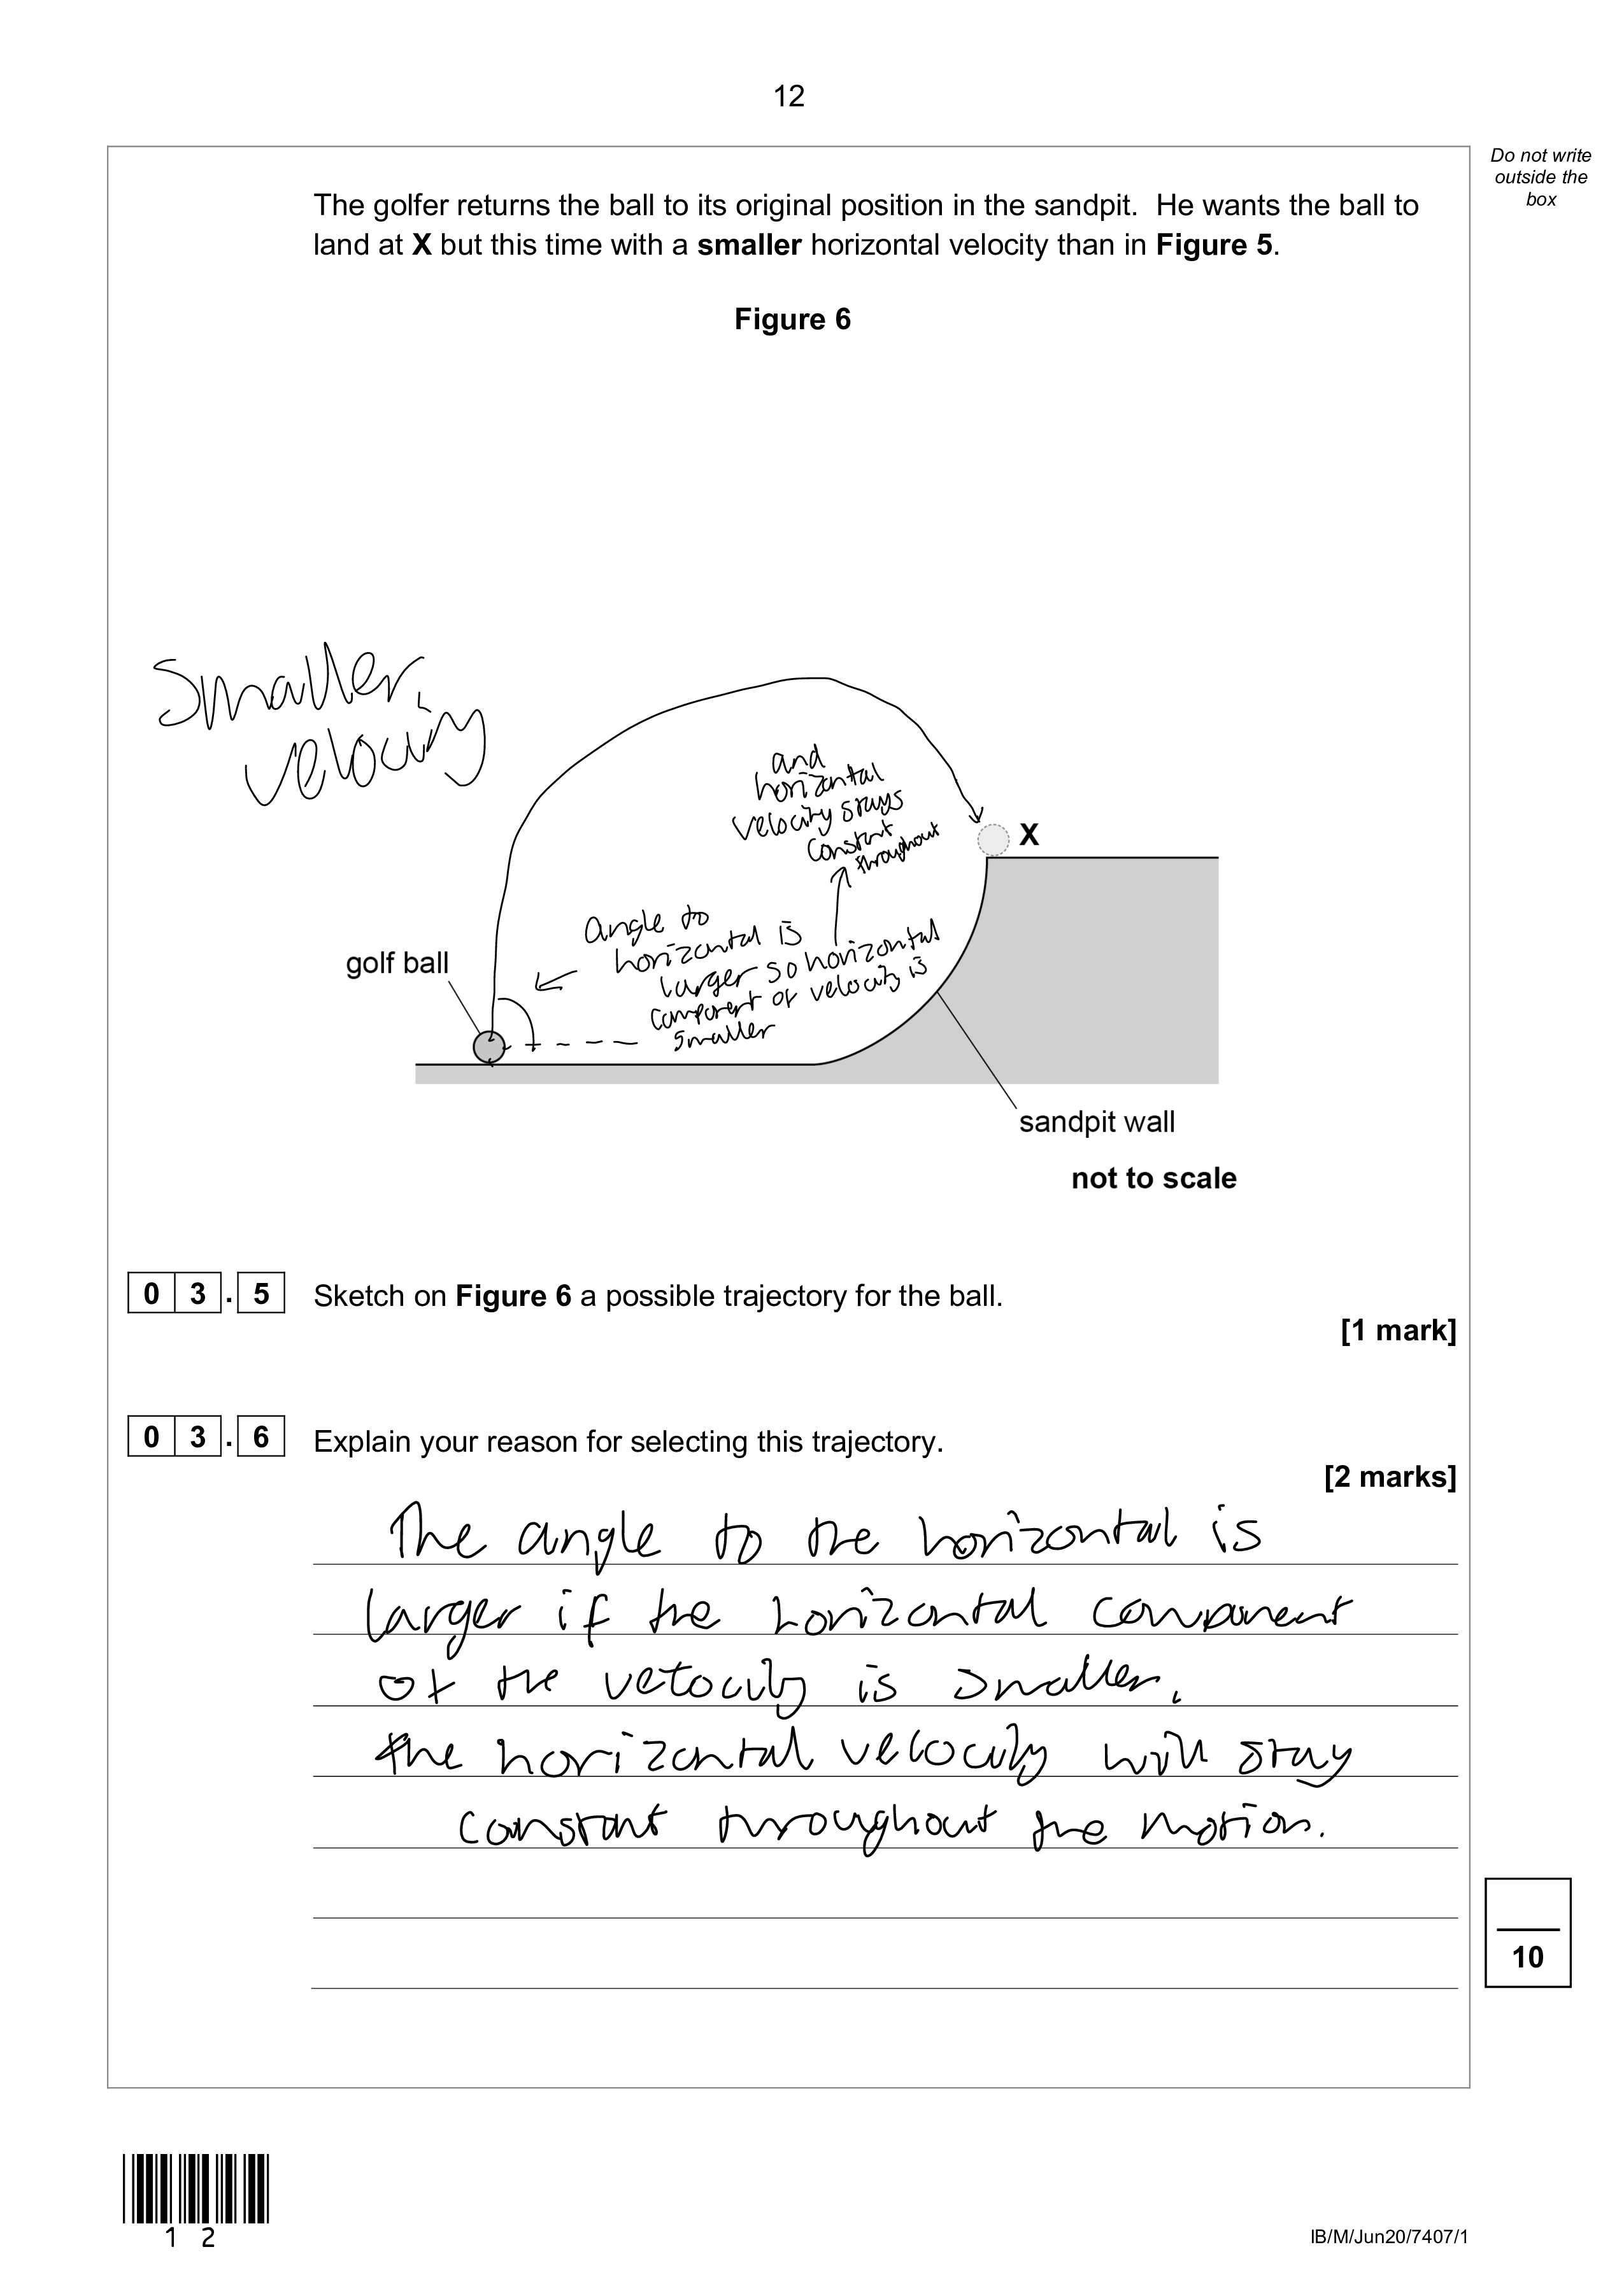 12
Do not write
outside the
box
The golfer returns the ball to its original position in the sandpit. He wants the ball to
land at X but this time with a smaller horizontal velocity than in Figure 5.
Figure 6
Smaller
velocity
and
horizontal
velocity stays
constant
throughout
X
angle to
horizontal is
larger so horizontal
component of velocity is
smaller
golf ball
sandpit wall
not to scale
03.5 Sketch on Figure 6 a possible trajectory for the ball.
[1 mark]
03.6 Explain your reason for selecting this trajectory.
[2 marks]
The angle to the horizontal is
larger if the horizontal component
of the velocity is smaller.
the horizontal velocity will stay
constant throughout the motion.
10
12
IB/M/Jun20/7407/1